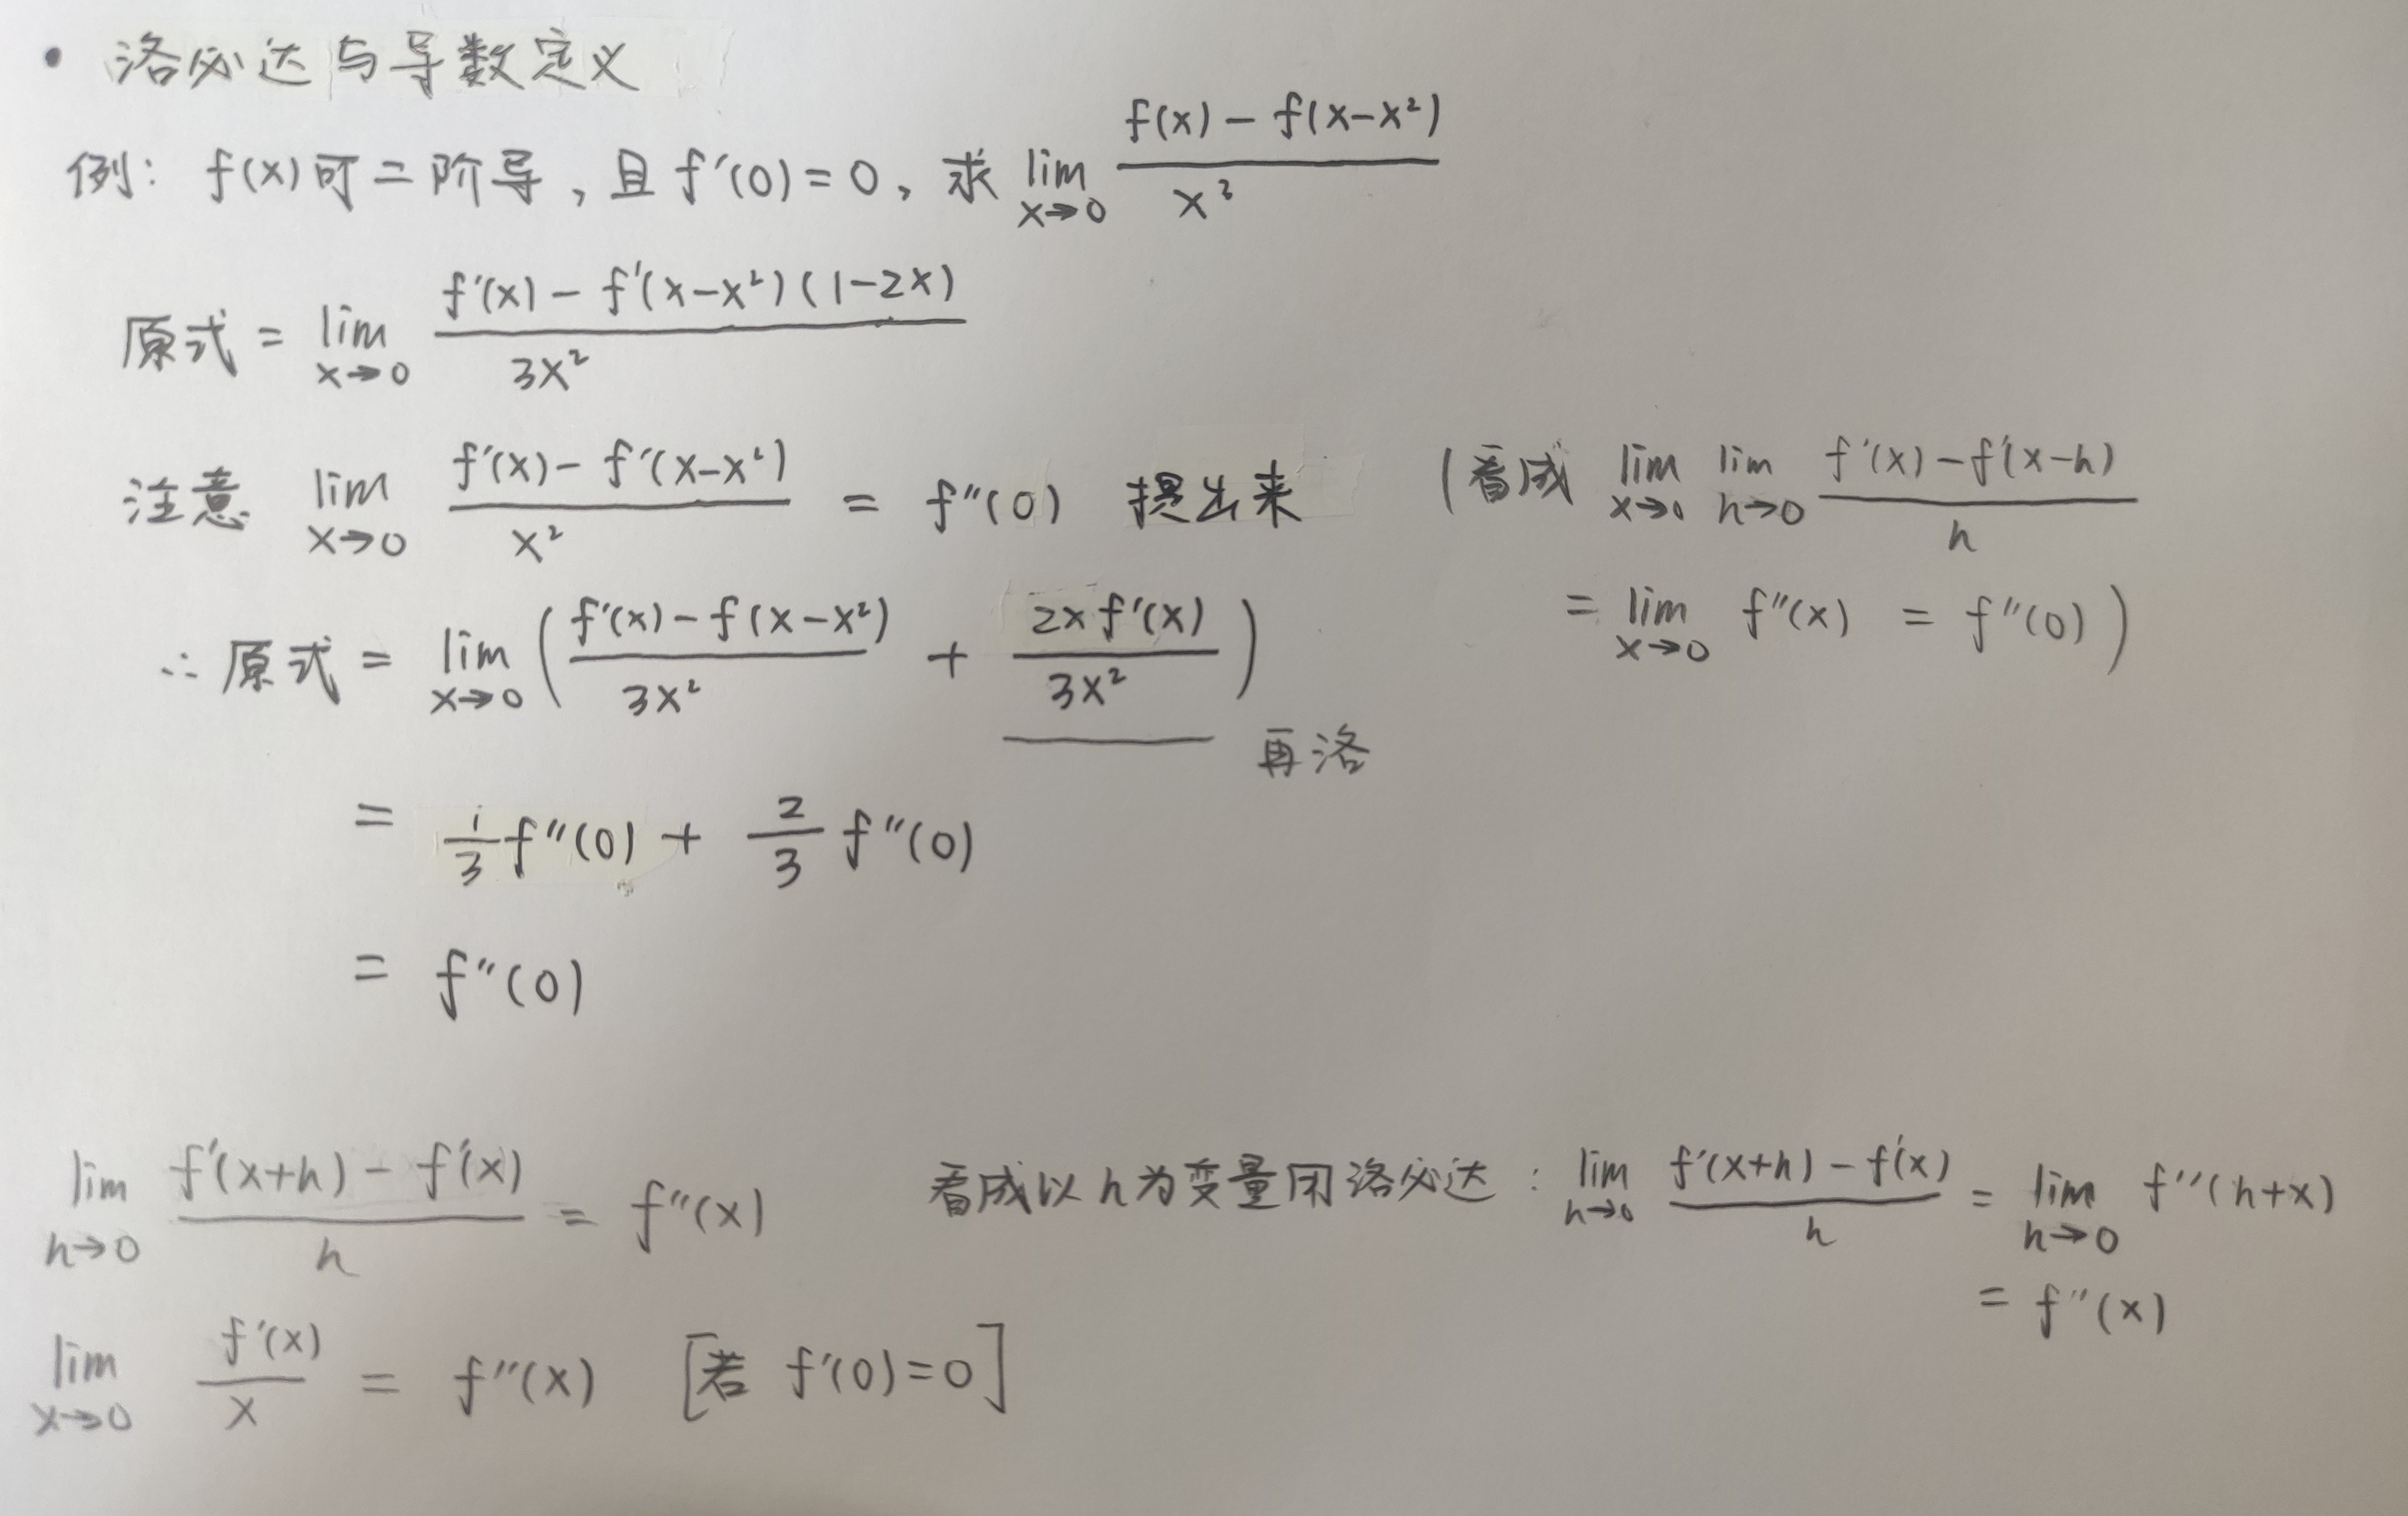 • 洛必达与导数定义
例: f(x)可二阶导, 且 f'(0)=0, 求 lim_{x→0} \frac{f(x)-f(x-x²)}{x³}
原式 = lim_{x→0} \frac{f'(x)-f'(x-x²)(1-2x)}{3x²}
注意 lim_{x→0} \frac{f'(x)-f'(x-x²)}{x²} = f''(0) 提出来 (看成 lim_{x→0} lim_{h→0} \frac{f'(x)-f'(x-h)}{h}
= lim_{x→0} f''(x) = f''(0))
∴ 原式 = lim_{x→0} (\frac{f'(x)-f(x-x²)}{3x²} + \frac{2xf'(x)}{3x²})
再洛
= \frac{1}{3}f''(0) + \frac{2}{3}f''(0)
= f''(0)
lim_{h→0} \frac{f'(x+h)-f'(x)}{h} = f''(x) 看成以h为变量用洛必达: lim_{h→0} \frac{f'(x+h)-f'(x)}{h} = lim_{h→0} f''(h+x)
= f''(x)
lim_{x→0} \frac{f'(x)}{x} = f''(x) [若 f'(0)=0]